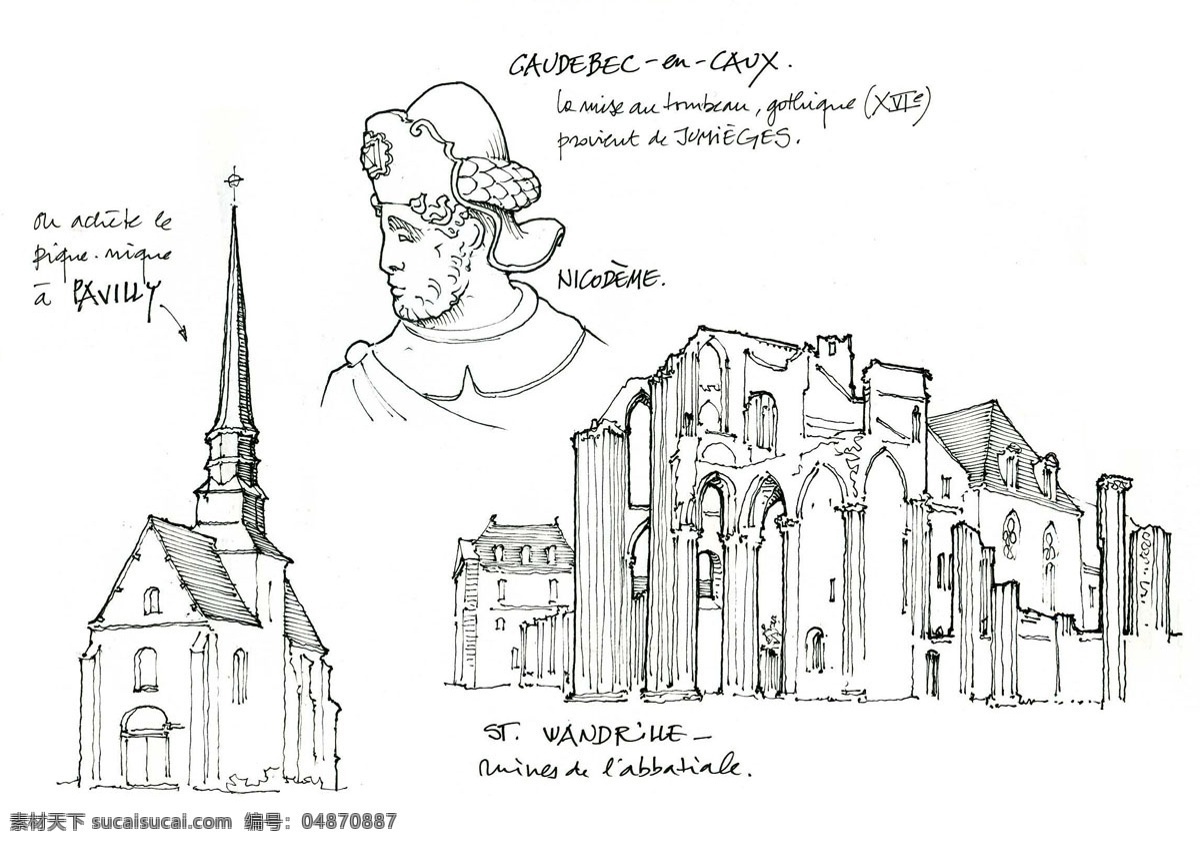 CAUDEBEC-en-CAUX.
la mise au tombeau, gothique (XVIe)
provient de JUMIÈGES.
on achète le
pique-nique
à PAVILLY
NICODÈME.
ST. WANDRILLE-
ruines de l'abbatiale.
素材天下 sucaisucai.com 编号: 04870887